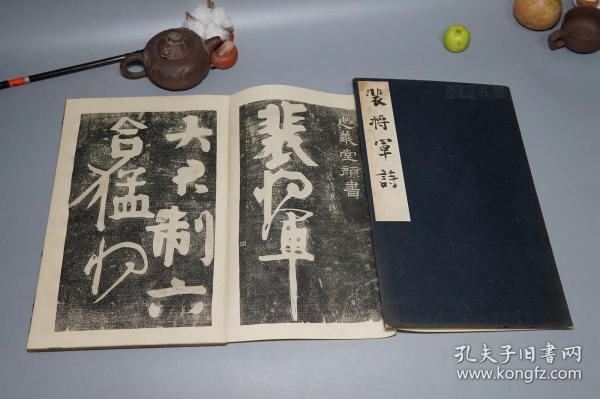 裴将軍詩
忠義堂
裴将軍
大君制六
合猛将
孔夫子旧书网
www.kongfz.com